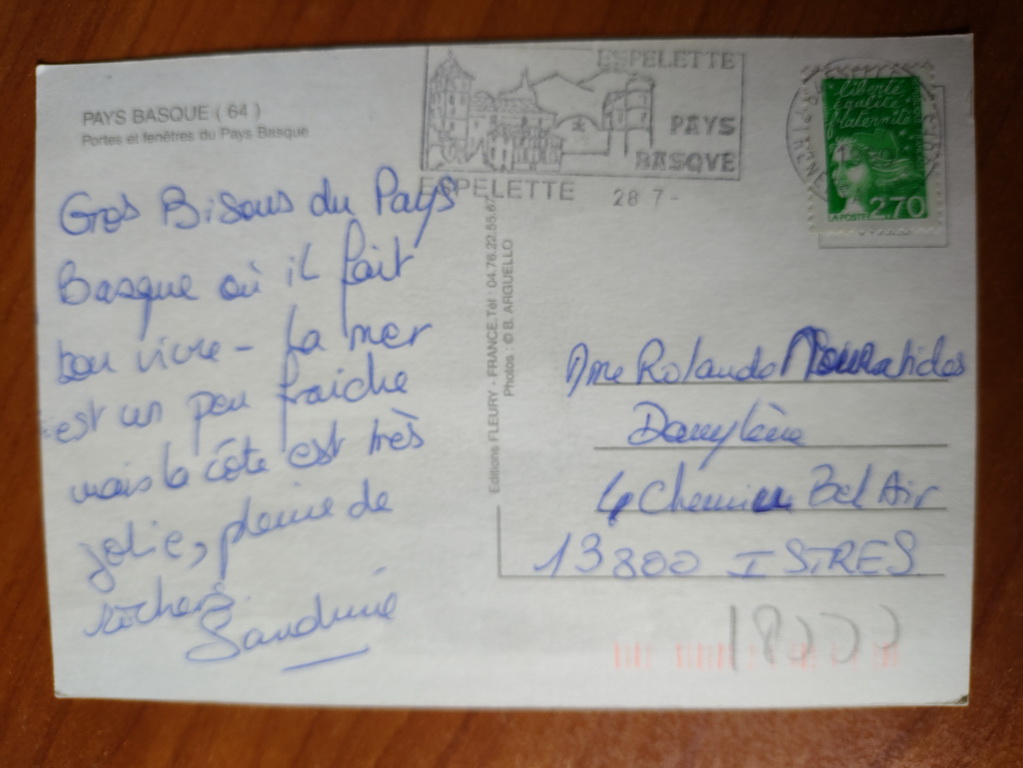 PAYS BASQUE ( 64 )
Portes et fenêtres du Pays Basque
Gros Bisous du Pays
Basque où il fait
bon vivre - La mer
est un peu fraiche
mais la côte est très
jolie, pleine de
rochers.
Sandrine
ESPELETTE
PAYS
BASQVE
ESPELETTE 28 7 -
liberté
égalité
fraternité
LA POSTE 2,70
Editions FLEURY - FRANCE. Tél : 04.76.22.55.67
Photos : © B. ARGUELLO
Mme Rolande
Chemin Bel Air
13800 ISTRES